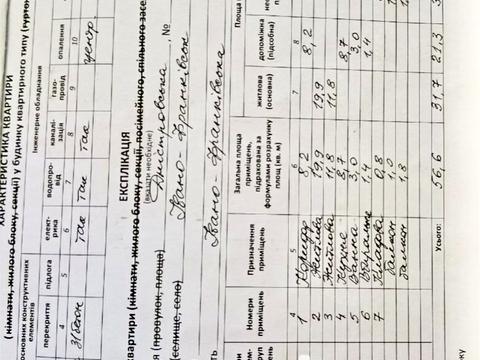 ХАРАКТЕРИСТИКА КВАРТИРИ
(кімнати, жилого блоку, секції) у будинку квартирного типу (гуртож
основних конструктивних елементів Інженерне обладнання
перекриття підлога елект-рика водопро-від каналі-зація газо-провід опалення
4 5 6 7 8 9 10
з/бетон так так так центр
ЕКСПЛІКАЦІЯ
квартири (кімнати, жилого блоку, секції, посімейного, спільного засе
(вказати необхідне)
(провулок, площа) Дністровська №
(селище, село) Івано-Франківськ
Івано-Франківська
Номери приміщень Призначення приміщень Загальна площа приміщень, підрахована за формулами розрахунку площі (кв. м) житлова (основна) допоміжна (підсобна)
4 5 6 7 8
1 Коридор 8,2 8,2
2 Житлова 19,9 19,9
3 Житлова 11,8 11,8
4 Кухня 8,7 8,7
5 Ванна 3,0 3,0
6 Вбиральня 1,4 1,4
7 Кладова 0,8
балкон 1,0
балкон 1,8
Усього: 56,6 31,7 21,3